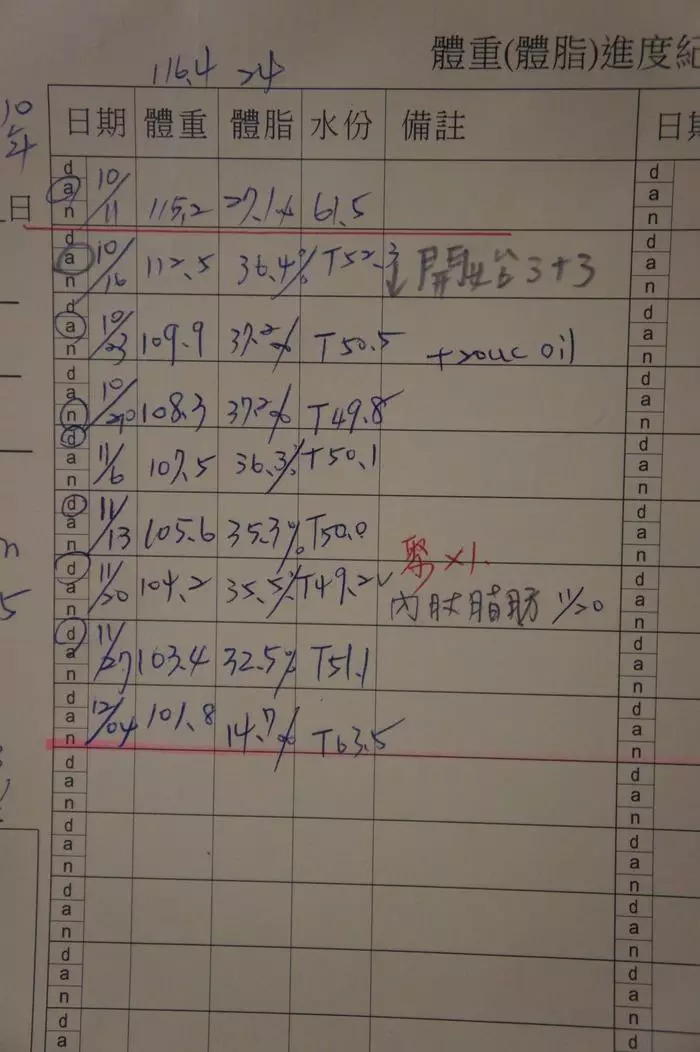 體重(體脂)進度紀
116.4 24
10年
日期 體重 體脂 水份 備註 日期
日
d a n 10/11 115.2 27.1% 61.5 d a n
d a n 10/16 112.5 36.4% T52.3 ↓開始3+3 d a n
d a n 10/23 109.9 37.2% T50.5 +20cc oil d a n
d a n 10/30 108.3 37.2% T49.8 d a n
d a n 11/6 107.5 36.3% T50.1 d a n
d a n 11/13 105.6 35.3% T50.0 d a n
聚x1.
d a n 11/20 104.2 35.5% T49.2 內臟脂肪 11/20 d a n
d a n 11/27 103.4 32.5% T51.1 d a n
d a n 12/04 101.8 14.7% T63.5 d a n
d a n d a n
d a n d a n
d a n d a n
d a n d a n
d a d a